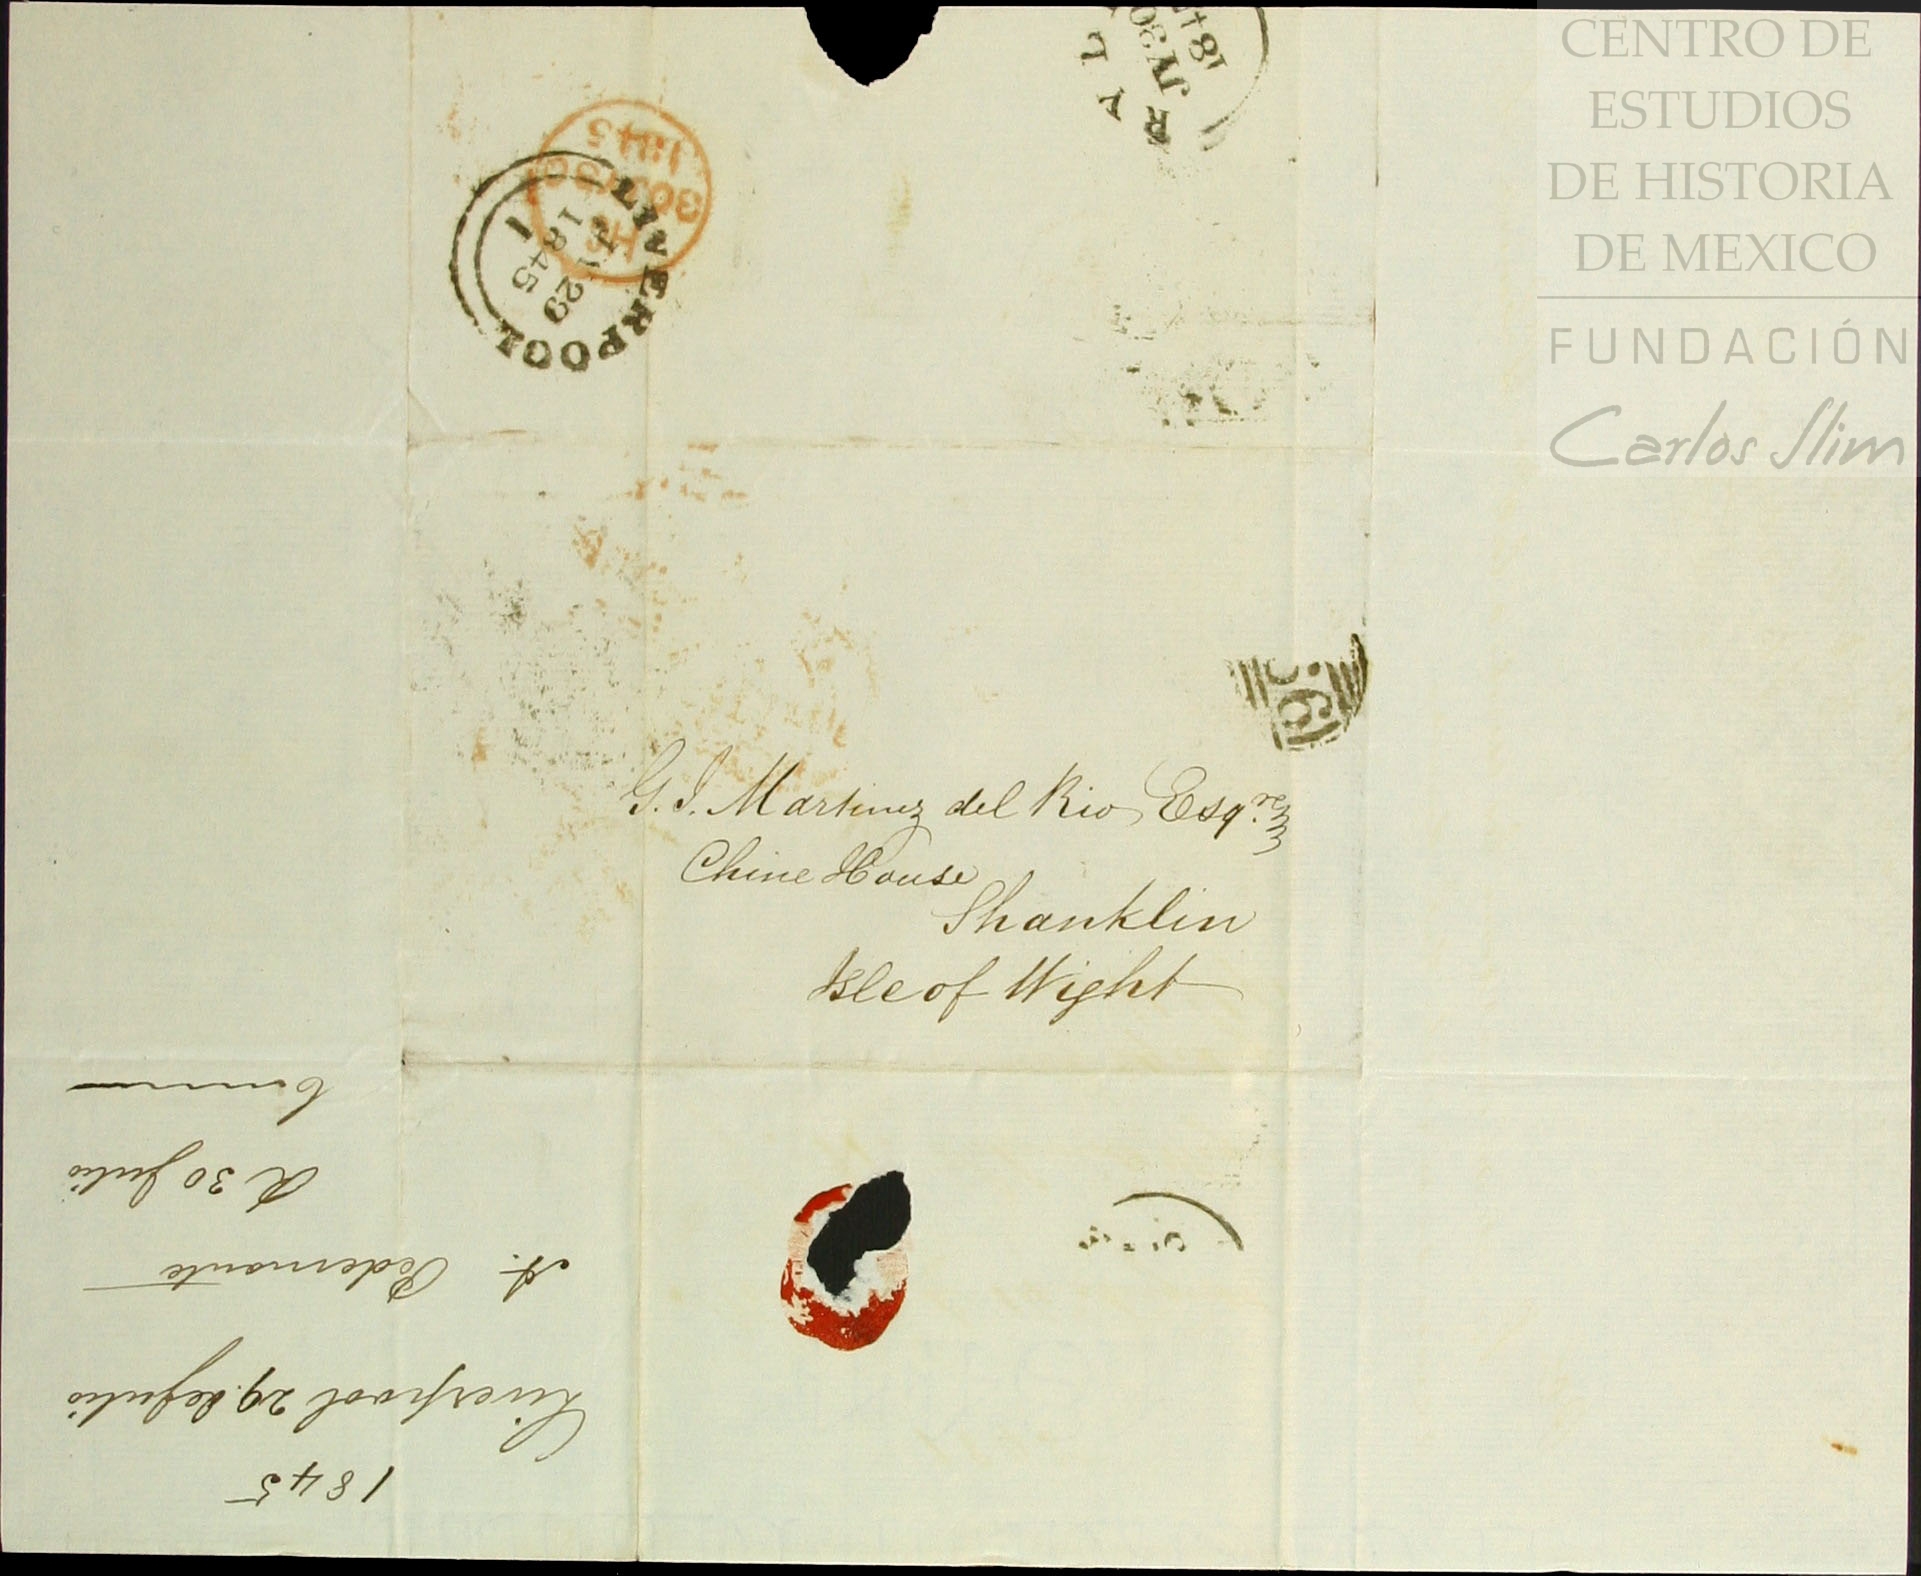 CENTRO DE
ESTUDIOS
DE HISTORIA
DE MEXICO
FUNDACIÓN
Carlos Slim
LIVERPOOL
1
JY 29
1845
1845
G. J. Martinez del Rio Esqre
Chine House
Shanklin
Isle of Wight
1845
Liverpool 29 de Julio
A. Pedemonte
R 30 Julio